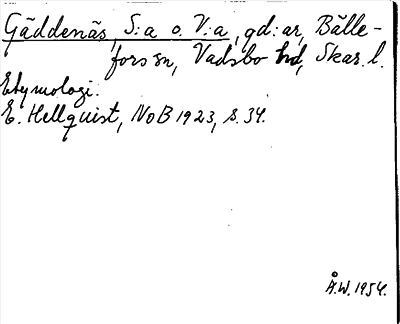 Gäddenäs, S:a o. V:a, gd:ar, Bälle-
fors sn, Vadsbo hd, Skar. l.
Etymologi:
E. Hellquist, NoB 1923, s. 34.
Å.W. 1954.